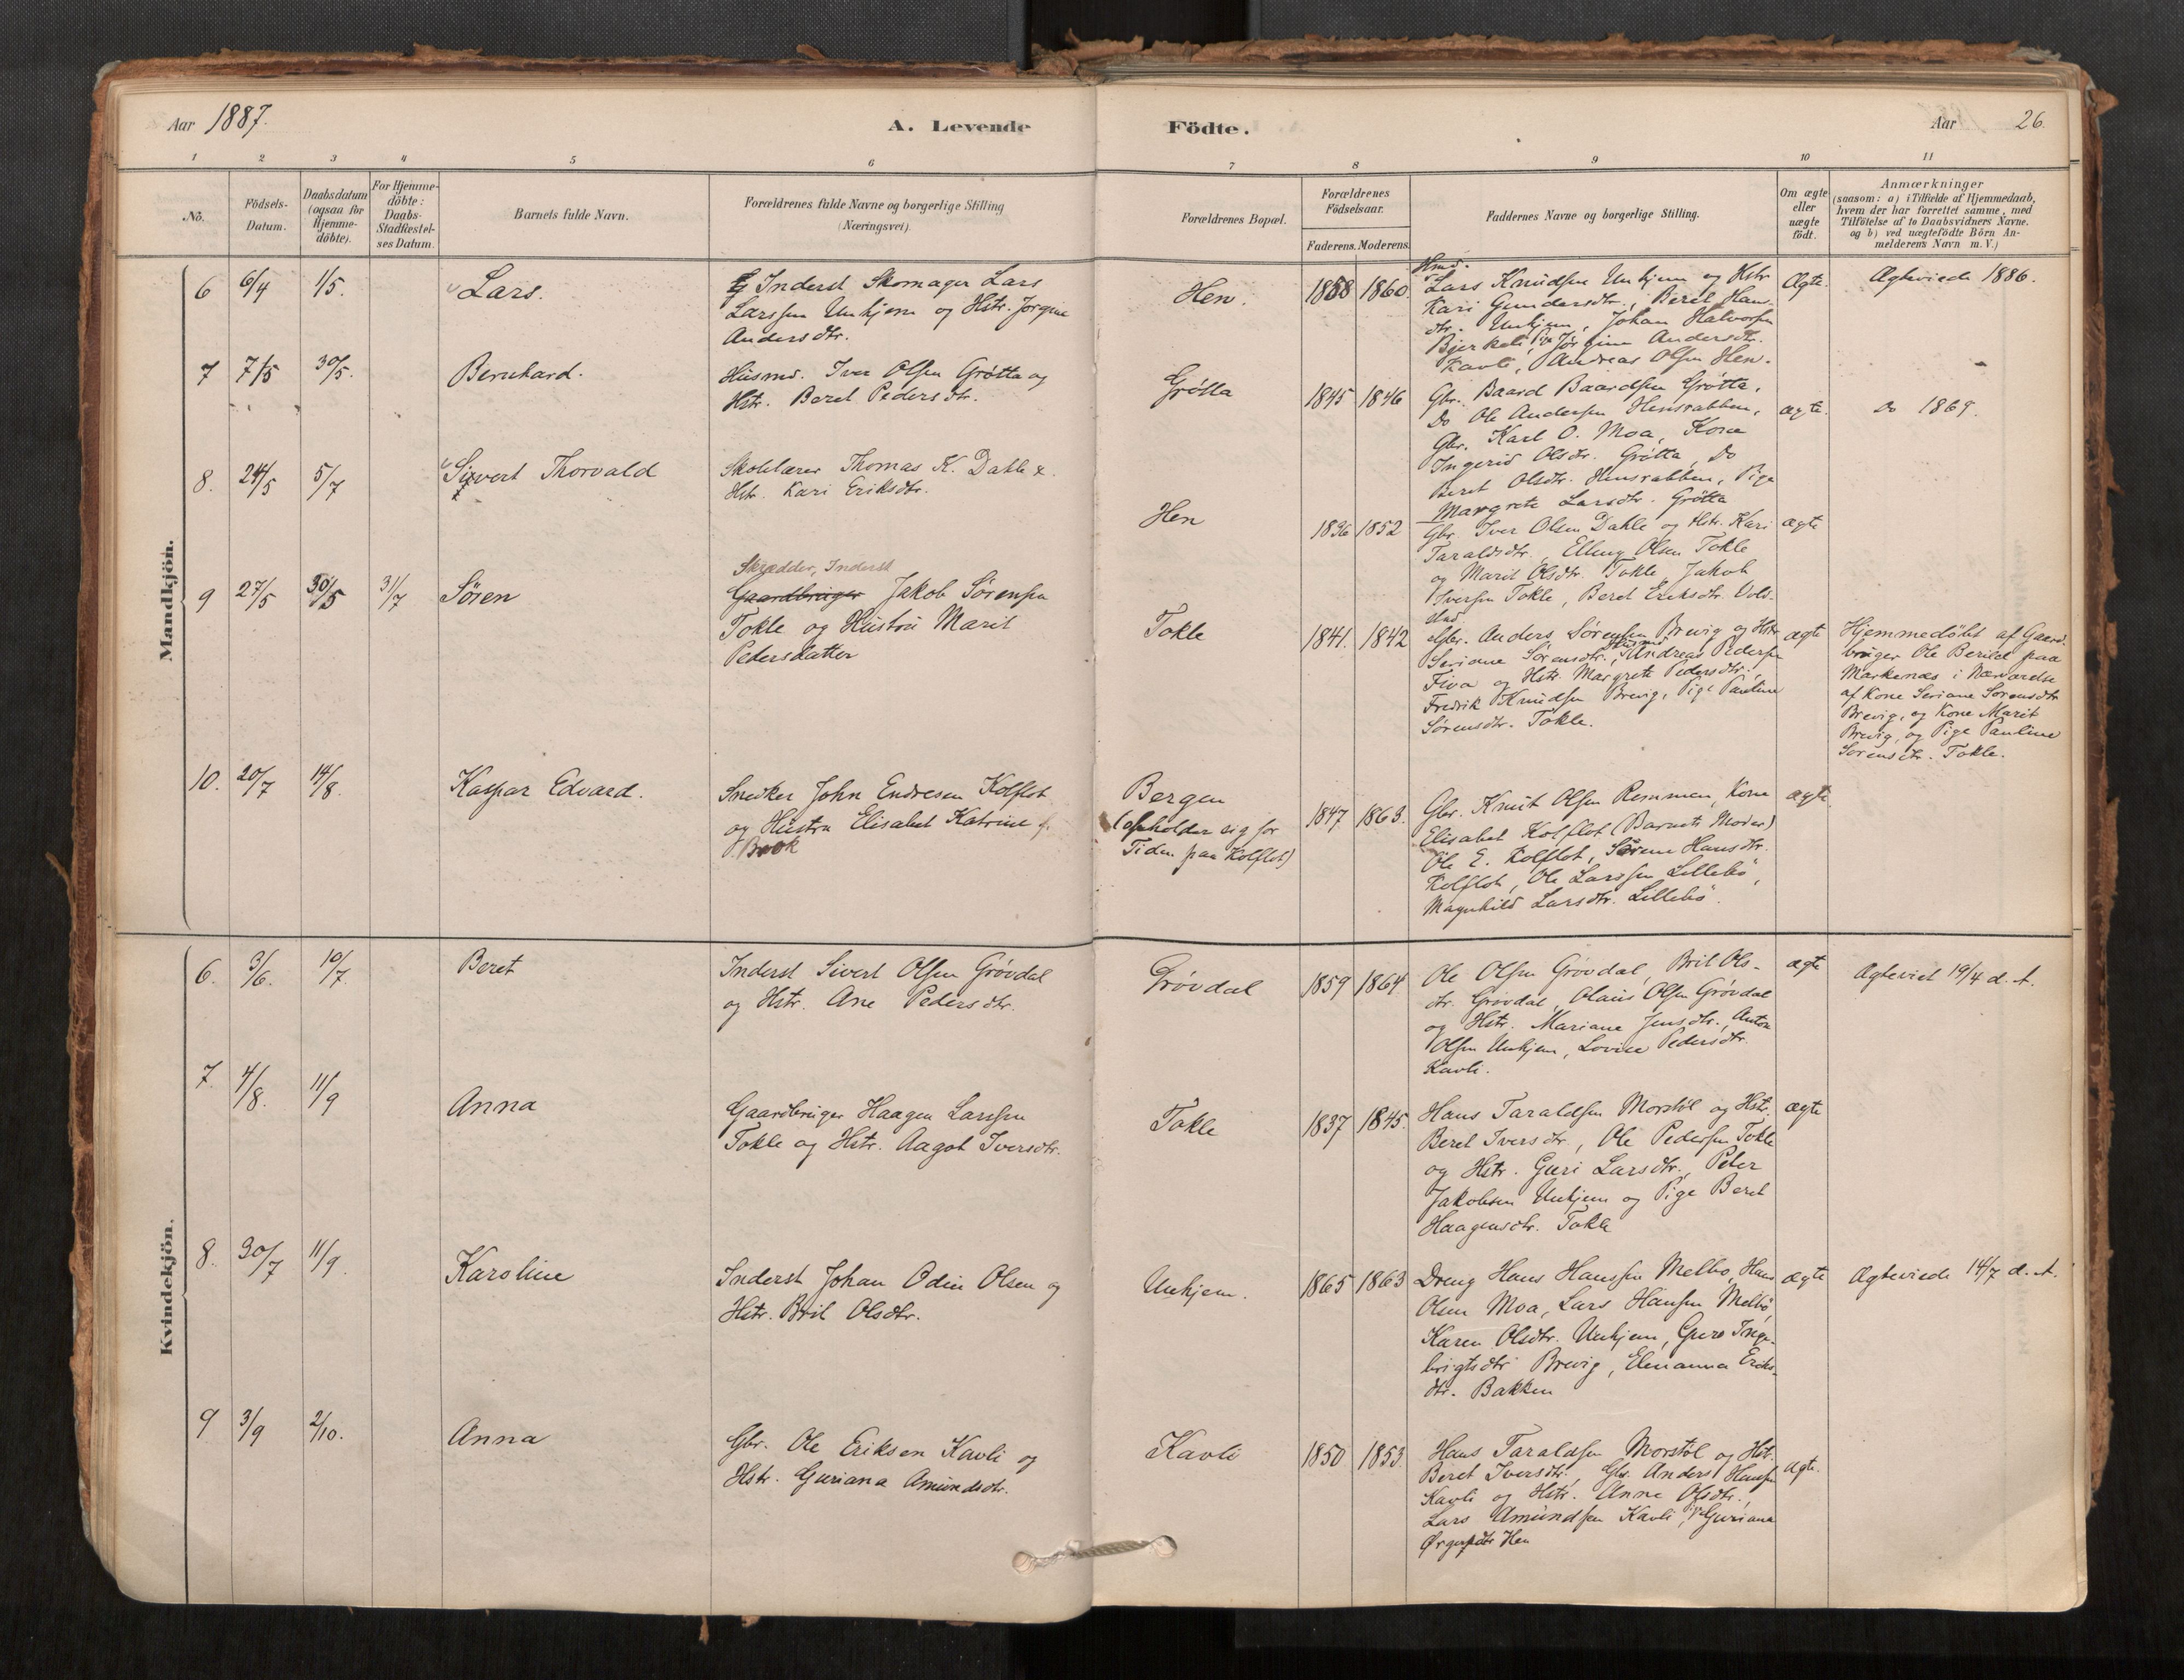 Aar 1887.
A. Levende
Födte.
Aar
26.
1
2
3
4
5
6
7
8
9
10
11
No.
Födsels-
Datum.
Daabsdatum
(ogsaa for
Hjemme-
döbte).
For Hjemme-
döbte:
Daabs-
Stadfæstel-
ses Datum.
Barnets fulde Navn.
Forældrenes fulde Navne og borgerlige Stilling
(Næringsvei).
Forældrenes Bopæl.
Forældrenes
Födselsaar.
Faderens. Moderens.
Faddernes Navne og borgerlige Stilling.
Om ægte
eller
uægte
födt.
Anmærkninger
(saasom: a) i Tilfælde af Hjemmedaab,
hvem der har forrettet samme, med
Tilföielse af to Daabsvidners Navne.
og b) ved uægtefödte Börn An-
melderens Navn m. V.)
Mandkjön.
6
6/4
1/5.
Lars.
Inderst Skomager Lars
Larssen Unhjem og Hstr. Jørgine
Andersdtr.
Hen.
1858
1860.
Hmd.
Lars Knudsen Unhjem og Hstr
Kari Gundersdtr., Beret Hans-
dtr. Unhjem, Johan Halvorsen
Bjerkeli, Pige Jørgine Andersdtr.
Kavli, Andreas Olsen Hen.
Ægte.
Ægteviede 1886.
7
7/5
30/5.
Bernhard.
Husmd. Iver Olsen Grøtta og
Hstr. Beret Pedersdtr.
Grøtta
1845
1846
Gbr. Baard Baardsen Grøtta,
Do Ole Andersen Hensrabben,
Gbr. Karl O. Moa, Kone
Ingerid Olsdtr. Grøtta, Do
Beret Olsdtr. Hensrabben, Pige
Margrete Larsdtr. Grøtta
ægte.
Do 1869.
8.
24/5
5/7
Sivert Thorvald
Skolelærer Thomas K. Dahle &
Hstr. Kari Eriksdtr.
Hen
1836
1852
Gbr. Iver Olsen Dahle og Hstr. Kari
Taraldsdtr., Elling Olsen Tokle
og Marit Olsdtr. Tokle Jakob
Iversen Tokle, Beret Eriksdtr. Vold-
stad.
ægte
9
27/5
30/5
31/7
Søren
Skrædder, Inderst
Gaardbruger Jakob Sørensen
Tokle og Hustru Marit
Pedersdatter
Tokle
1841.
1842
Gbr. Anders Sørensen Brevig og Hstr
Seriane Sørensdtr., Husmd Andreas Pedersen
Fiva og Hstr. Margrete Pedersdtr.,
Fredrik Knudsen Brevig, Pige Pauline
Sørensdtr. Tokle.
ægte
Hjemmedöbt af Gaard-
bruger Ole Berild paa
Maskenæs i Nærværelse
af Kone Seriane Sørensdtr
Brevig, og Kone Marit
Brevig, og Pige Pauline
Sørensdtr. Tokle.
10.
20/7
14/8.
Kaspar Edvard.
Snedker John Endresen Kolflot
og Hustru Elisabet Katrine f.
Book
Bergen
(opholder sig for
Tiden paa Kolflot)
1847
1863.
Gbr. Knut Olsen Remmen, Kone
Elisabet Kolflot (Barnets Moder)
Ole E. Kolflot, Sørine Hansdtr.
Kolflot, Ole Larssen Lillebö,
Magnhild Larsdtr. Lillebö.
ægte
Kvindekjön.
6.
3/6.
10/7.
Beret
Inderst Sivert Olsen Grøvdal
og Hstr. Ane Pedersdtr.
Grøvdal
1859
1864
Ole Olsen Grøvdal, Brit Ols-
dtr. Grøvdal, Olaus Olsen Grøvdal
og Hstr. Mariane Jensdtr., Anton
Olsen Unhjem, Lovise Pedersdtr.
Kavli.
ægte
Ægteviet 19/4 d. A.
7.
4/8.
11/9
Anna
Gaardbruger Haagen Larssen
Tokle og Hstr. Aagot Iversdtr.
Tokle
1837
1845.
Hans Taraldsen Morstöl og Hstr.
Beret Iversdtr., Ole Pedersen Tokle
og Hstr. Guri Larsdtr., Peter
Jakobsen Unhjem og Pige Beret
Haagensdtr. Tokle
ægte
8.
30/7
11/9.
Karoline
Inderst Johan Odin Olsen og
Hstr. Brit Olsdtr.
Unhjem.
1865
1863
Dreng Hans Hanssen Melbo, Hans
Olsen Moa, Lars Hansen Melbö
Karen Olsdtr. Unhjem, Guro Inge-
brigtsdtr Brevig, Elenanna Eriks-
dtr. Bakken
ægte
Ægteviede 14/7 d. A.
9
3/9
2/10.
Anna
Gbr. Ole Eriksen Kavli og
Hstr. Guriana Amundsdtr.
Kavli
1850
1853.
Hans Taraldsen Morstöl og Hstr.
Beret Iversdtr., Gbr. Anders Hansen
Kavli og Hstr. Anne Olsdtr.,
Lars Amundsen Kavli, Pige Guriana
Hen
ægte.